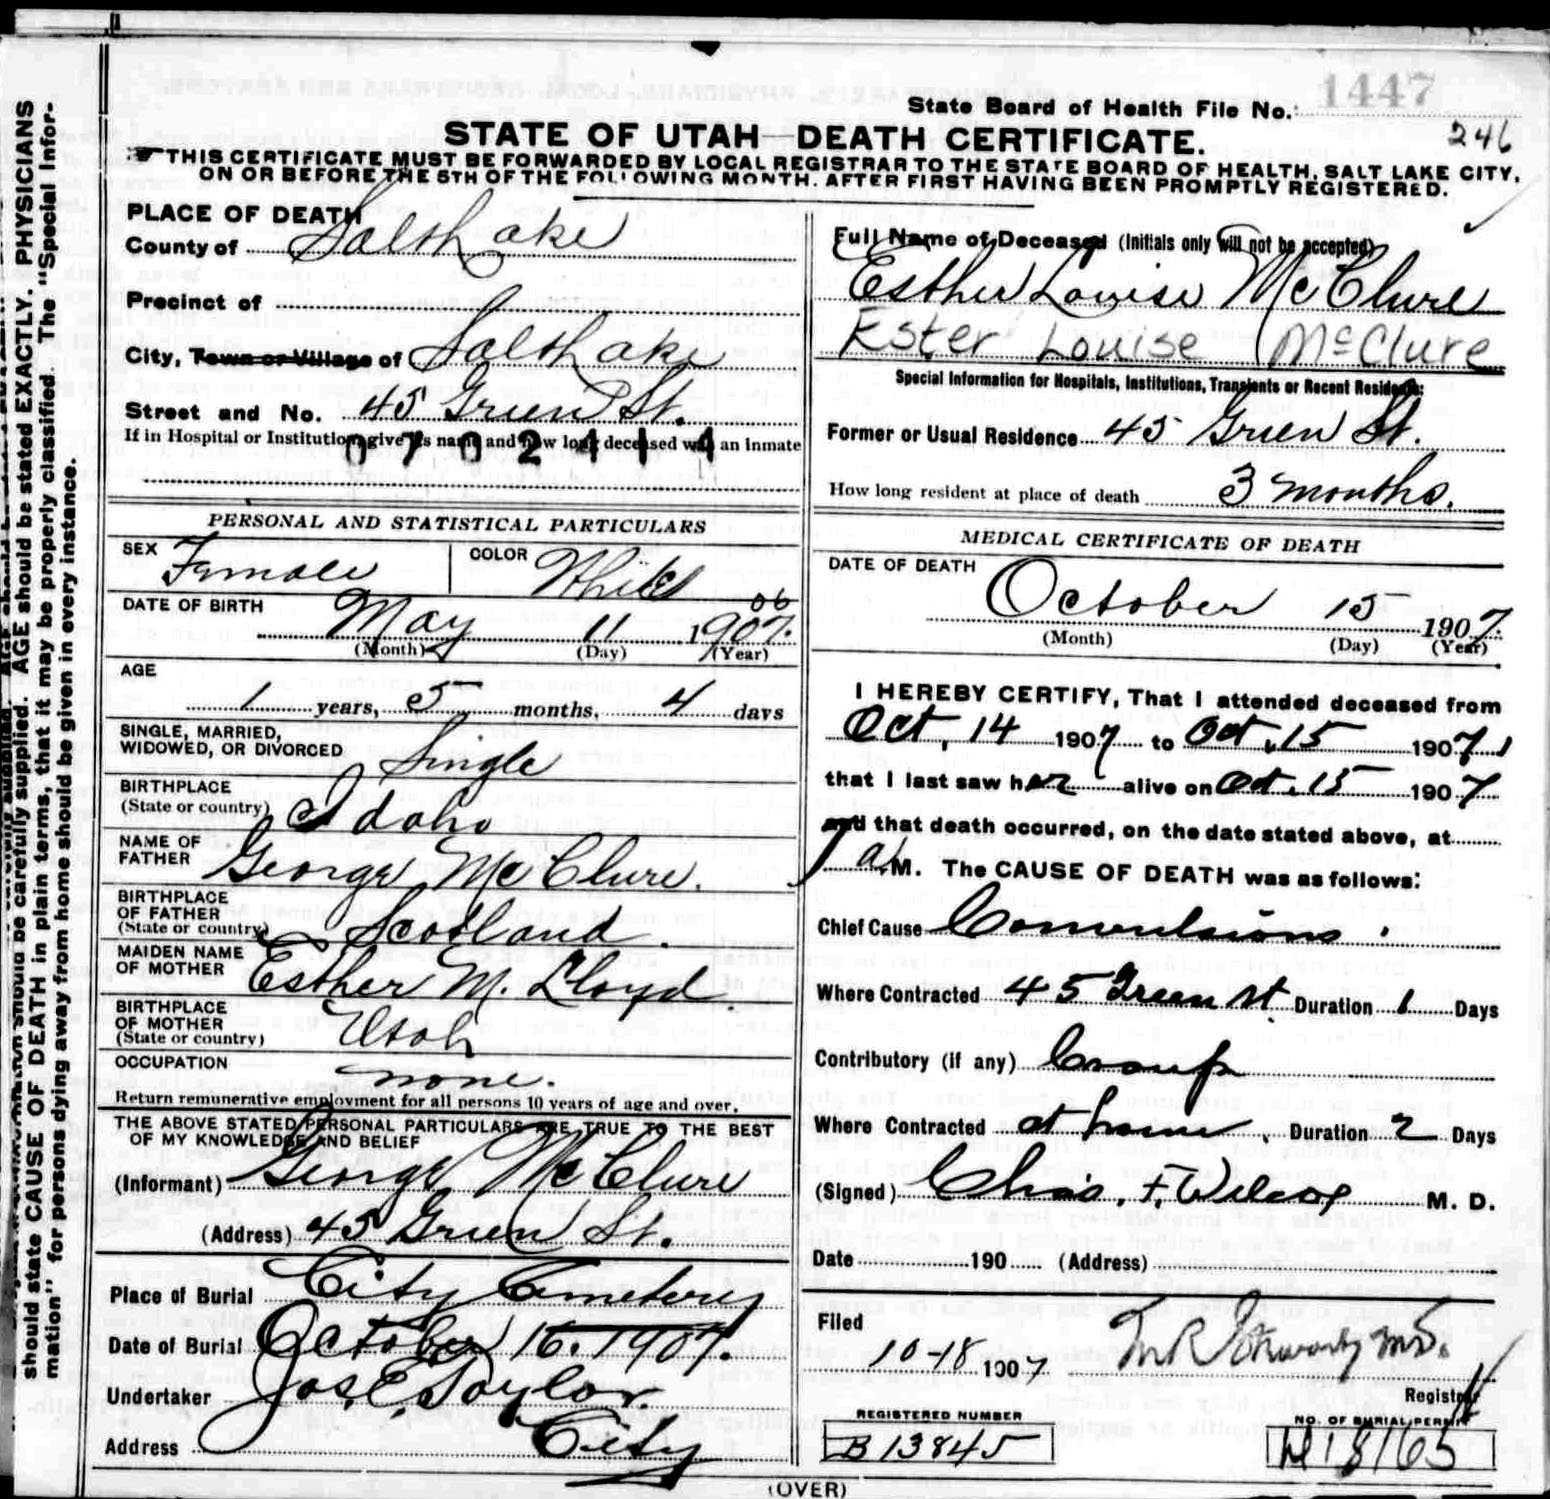 1447
State Board of Health File No.
246
STATE OF UTAH—DEATH CERTIFICATE.
THIS CERTIFICATE MUST BE FORWARDED BY LOCAL REGISTRAR TO THE STATE BOARD OF HEALTH, SALT LAKE CITY,
ON OR BEFORE THE 5TH OF THE FOLLOWING MONTH. AFTER FIRST HAVING BEEN PROMPTLY REGISTERED.
should be carefully supplied. AGE should be stated EXACTLY. PHYSICIANS
should state CAUSE OF DEATH in plain terms, that it may be properly classified. The "Special Infor-
mation" for persons dying away from home should be given in every instance.
PLACE OF DEATH
County of Salt Lake
Precinct of
City, Town or Village of Salt Lake
Street and No. 45 Green St.
If in Hospital or Institution give its name and how long deceased was an inmate
0702414
PERSONAL AND STATISTICAL PARTICULARS
SEX Female COLOR White
06
DATE OF BIRTH May 11 1907.
(Month) (Day) (Year)
AGE
1 years, 5 months, 4 days
SINGLE, MARRIED,
WIDOWED, OR DIVORCED Single
BIRTHPLACE
(State or country) Idaho
NAME OF
FATHER George McClure.
BIRTHPLACE
OF FATHER
(State or country) Scotland.
MAIDEN NAME
OF MOTHER Esther M. Lloyd.
BIRTHPLACE
OF MOTHER
(State or country) Utah
OCCUPATION none.
Return remunerative employment for all persons 10 years of age and over.
THE ABOVE STATED PERSONAL PARTICULARS ARE TRUE TO THE BEST
OF MY KNOWLEDGE AND BELIEF
(Informant) George McClure
(Address) 45 Green St.
Place of Burial City Cemetery
Date of Burial October 16. 1907.
Undertaker Jos. E. Taylor.
Address City
Full Name of Deceased (Initials only will not be accepted)
Esther Louise McClure
Ester Louise McClure
Special Information for Hospitals, Institutions, Transients or Recent Residents:
Former or Usual Residence 45 Green St.
How long resident at place of death 3 months.
MEDICAL CERTIFICATE OF DEATH
DATE OF DEATH
October 15 1907.
(Month) (Day) (Year)
I HEREBY CERTIFY, That I attended deceased from
Oct, 14 1907 to Oct. 15 1907,
that I last saw her alive on Oct. 15 1907
and that death occurred, on the date stated above, at
1 a.M. The CAUSE OF DEATH was as follows:
Chief Cause Convulsions.
Where Contracted 45 Green St. Duration 1 Days
Contributory (if any) Croup
Where Contracted at home. Duration 2 Days
(Signed) Chas. F. Wilcox M. D.
Date 190 (Address)
Filed
10-18 1907
Registrar
REGISTERED NUMBER
B 13845
NO. OF BURIAL PERMIT
18165
(OVER)